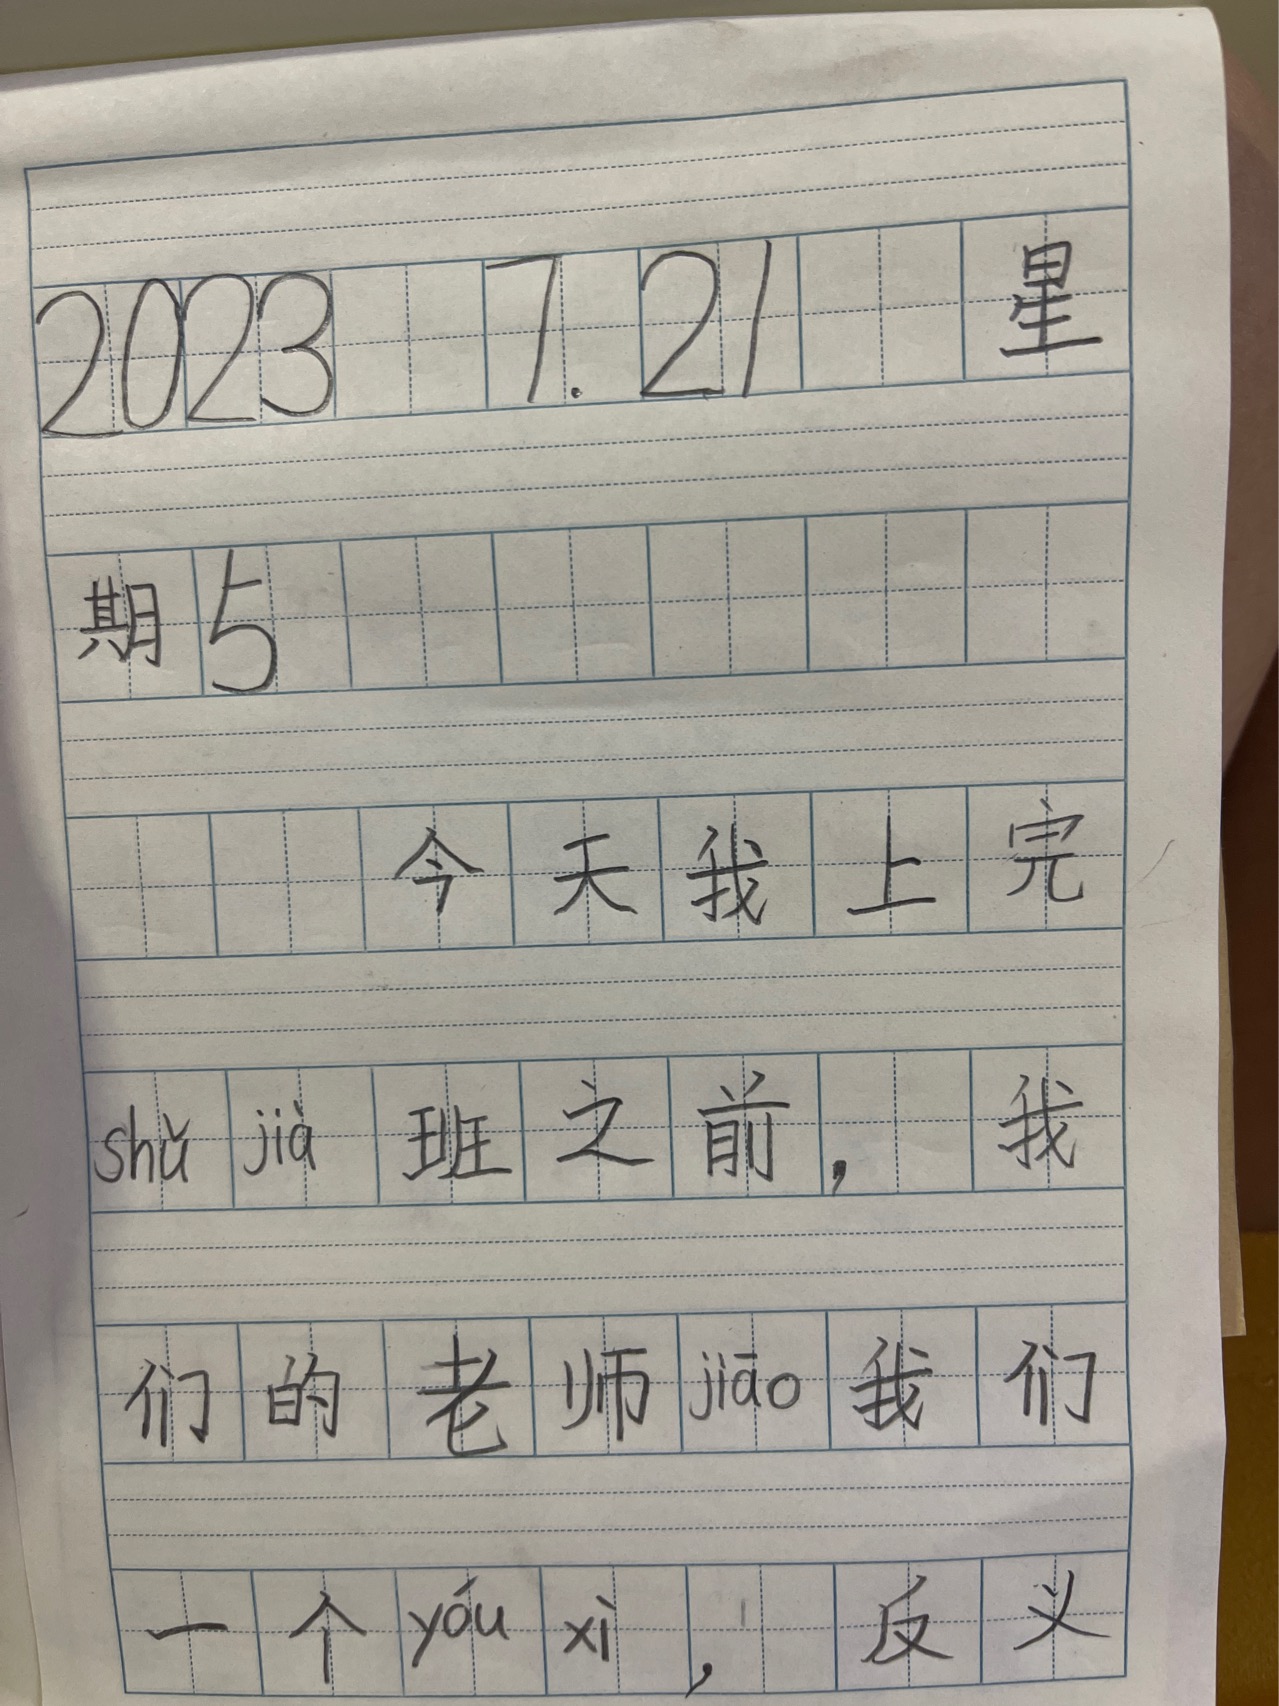 2023 7.21 星
期5
今天我上完
shǔ jià 班之前，我
们的老师 jiāo 我们
一个 yóu xì，反义